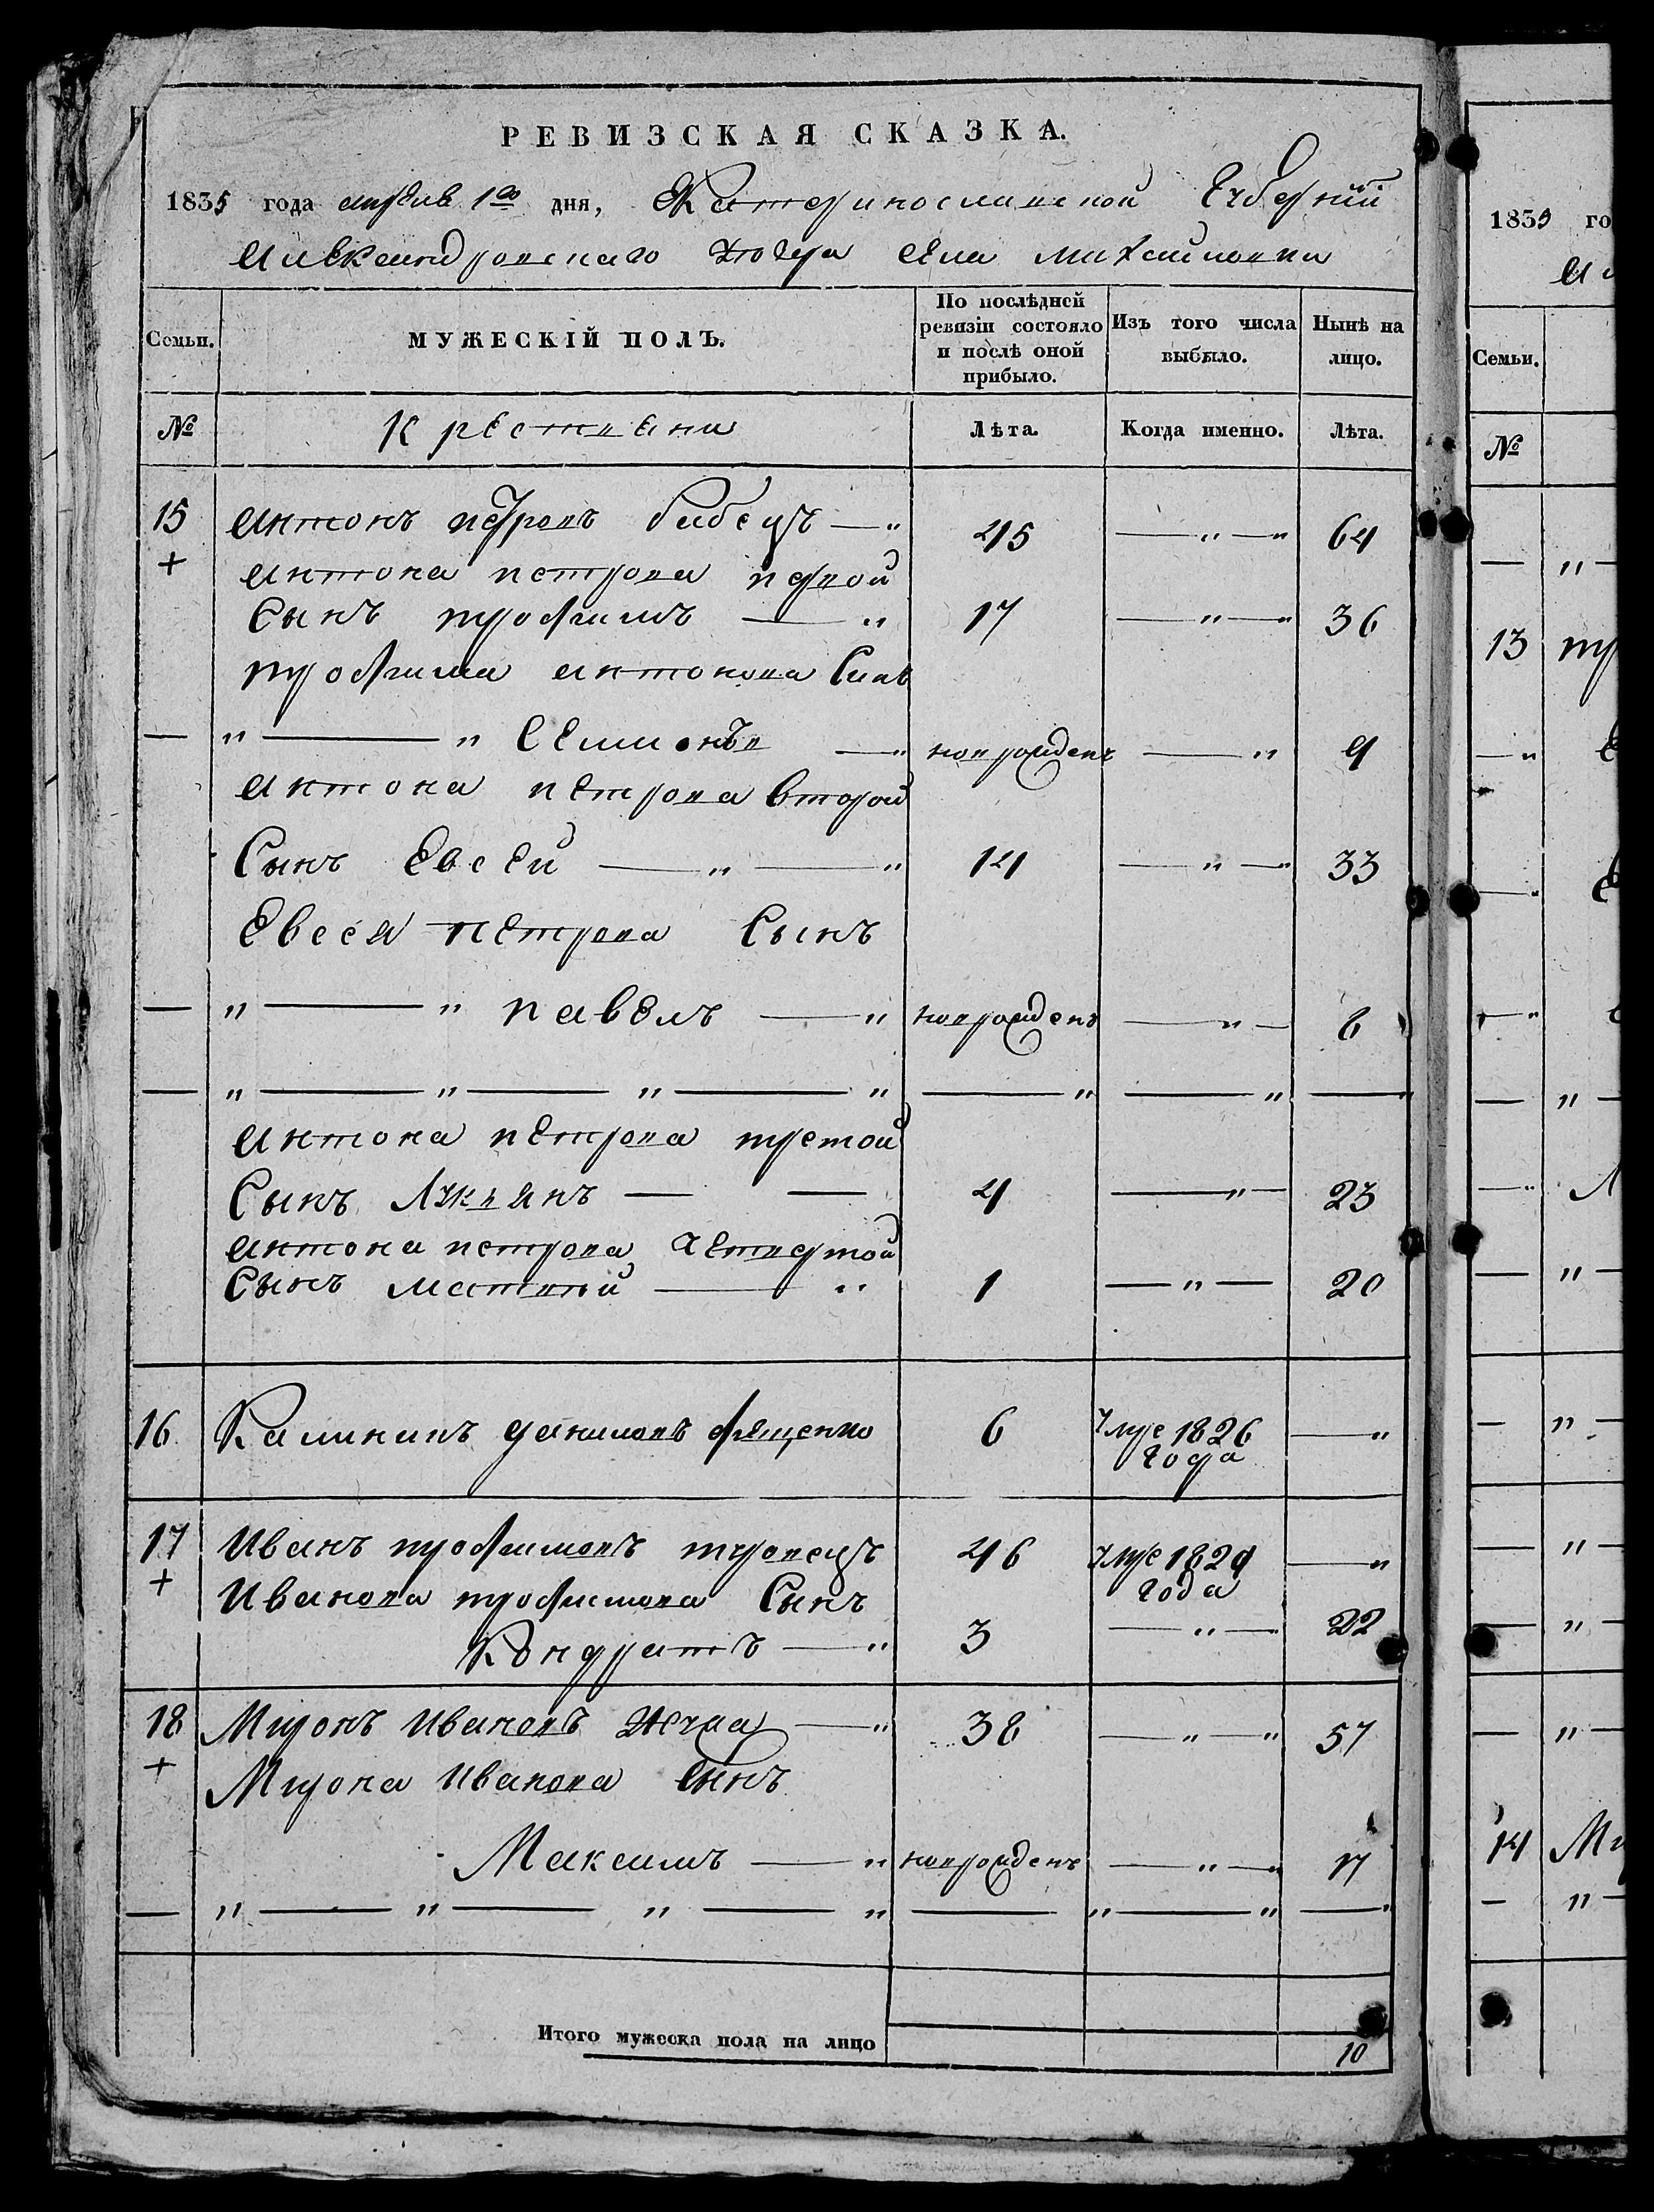 РЕВИЗСКАЯ СКАЗКА.
1835 года апреля 1го дня, Екатеринославской Губернїи
Александровского уезда села Михайловки
Семьи. МУЖЕСКІЙ ПОЛЪ. По послѣдней ревизіи состояло и послѣ оной прибыло. Изъ того числа выбыло. Нынѣ на лицо.
№ Крестяни Лѣта. Когда именно. Лѣта.
15 Антонъ петровъ бабецъ — „ 45 — „ — „ 64
+ Антона петрова первой
Сынъ трофимъ — „ 17 — „ — „ 36
трофима антонова Синъ
— „ — „ Семионъ — „ новрожденъ — „ 9
Антона петрова второй
Сынъ Евсей — „ — „ 14 — „ — „ 33
Евсея петрова Сынъ
— „ — „ павелъ — „ новрожденъ — „ — 6
— „ — „ — „ — „ — „ — „ —
Антона петрова третой
Сынъ Лукянъ — — 4 — „ — 23
Антона петрова четвертой
Сынъ Матвѣй — „ 1 — „ — 20
16 Калининъ даниловъ 6 Умре 1826 — „
года
17 Иванъ трофимовъ 46 Умре 1829 — „
года
+ Иванова трофимова Сынъ
Кондратъ — „ 3 — „ — 22
18 Миронъ Ивановъ — „ 38 — „ — „ 57
+ Мирона Иванова Сынъ
Максимъ — „ новрожденъ — „ — „ 17
— „ — „ — „ — „ — „ — „ —
Итого мужеска пола на лицо 10
1835 го
Семьи.
№
— „ —
13 тр
— „
— „
— „
— „ —
— „ Л
— „ —
— „ —
— „ —
— „ —
— „ —
14 Ми
— „ —